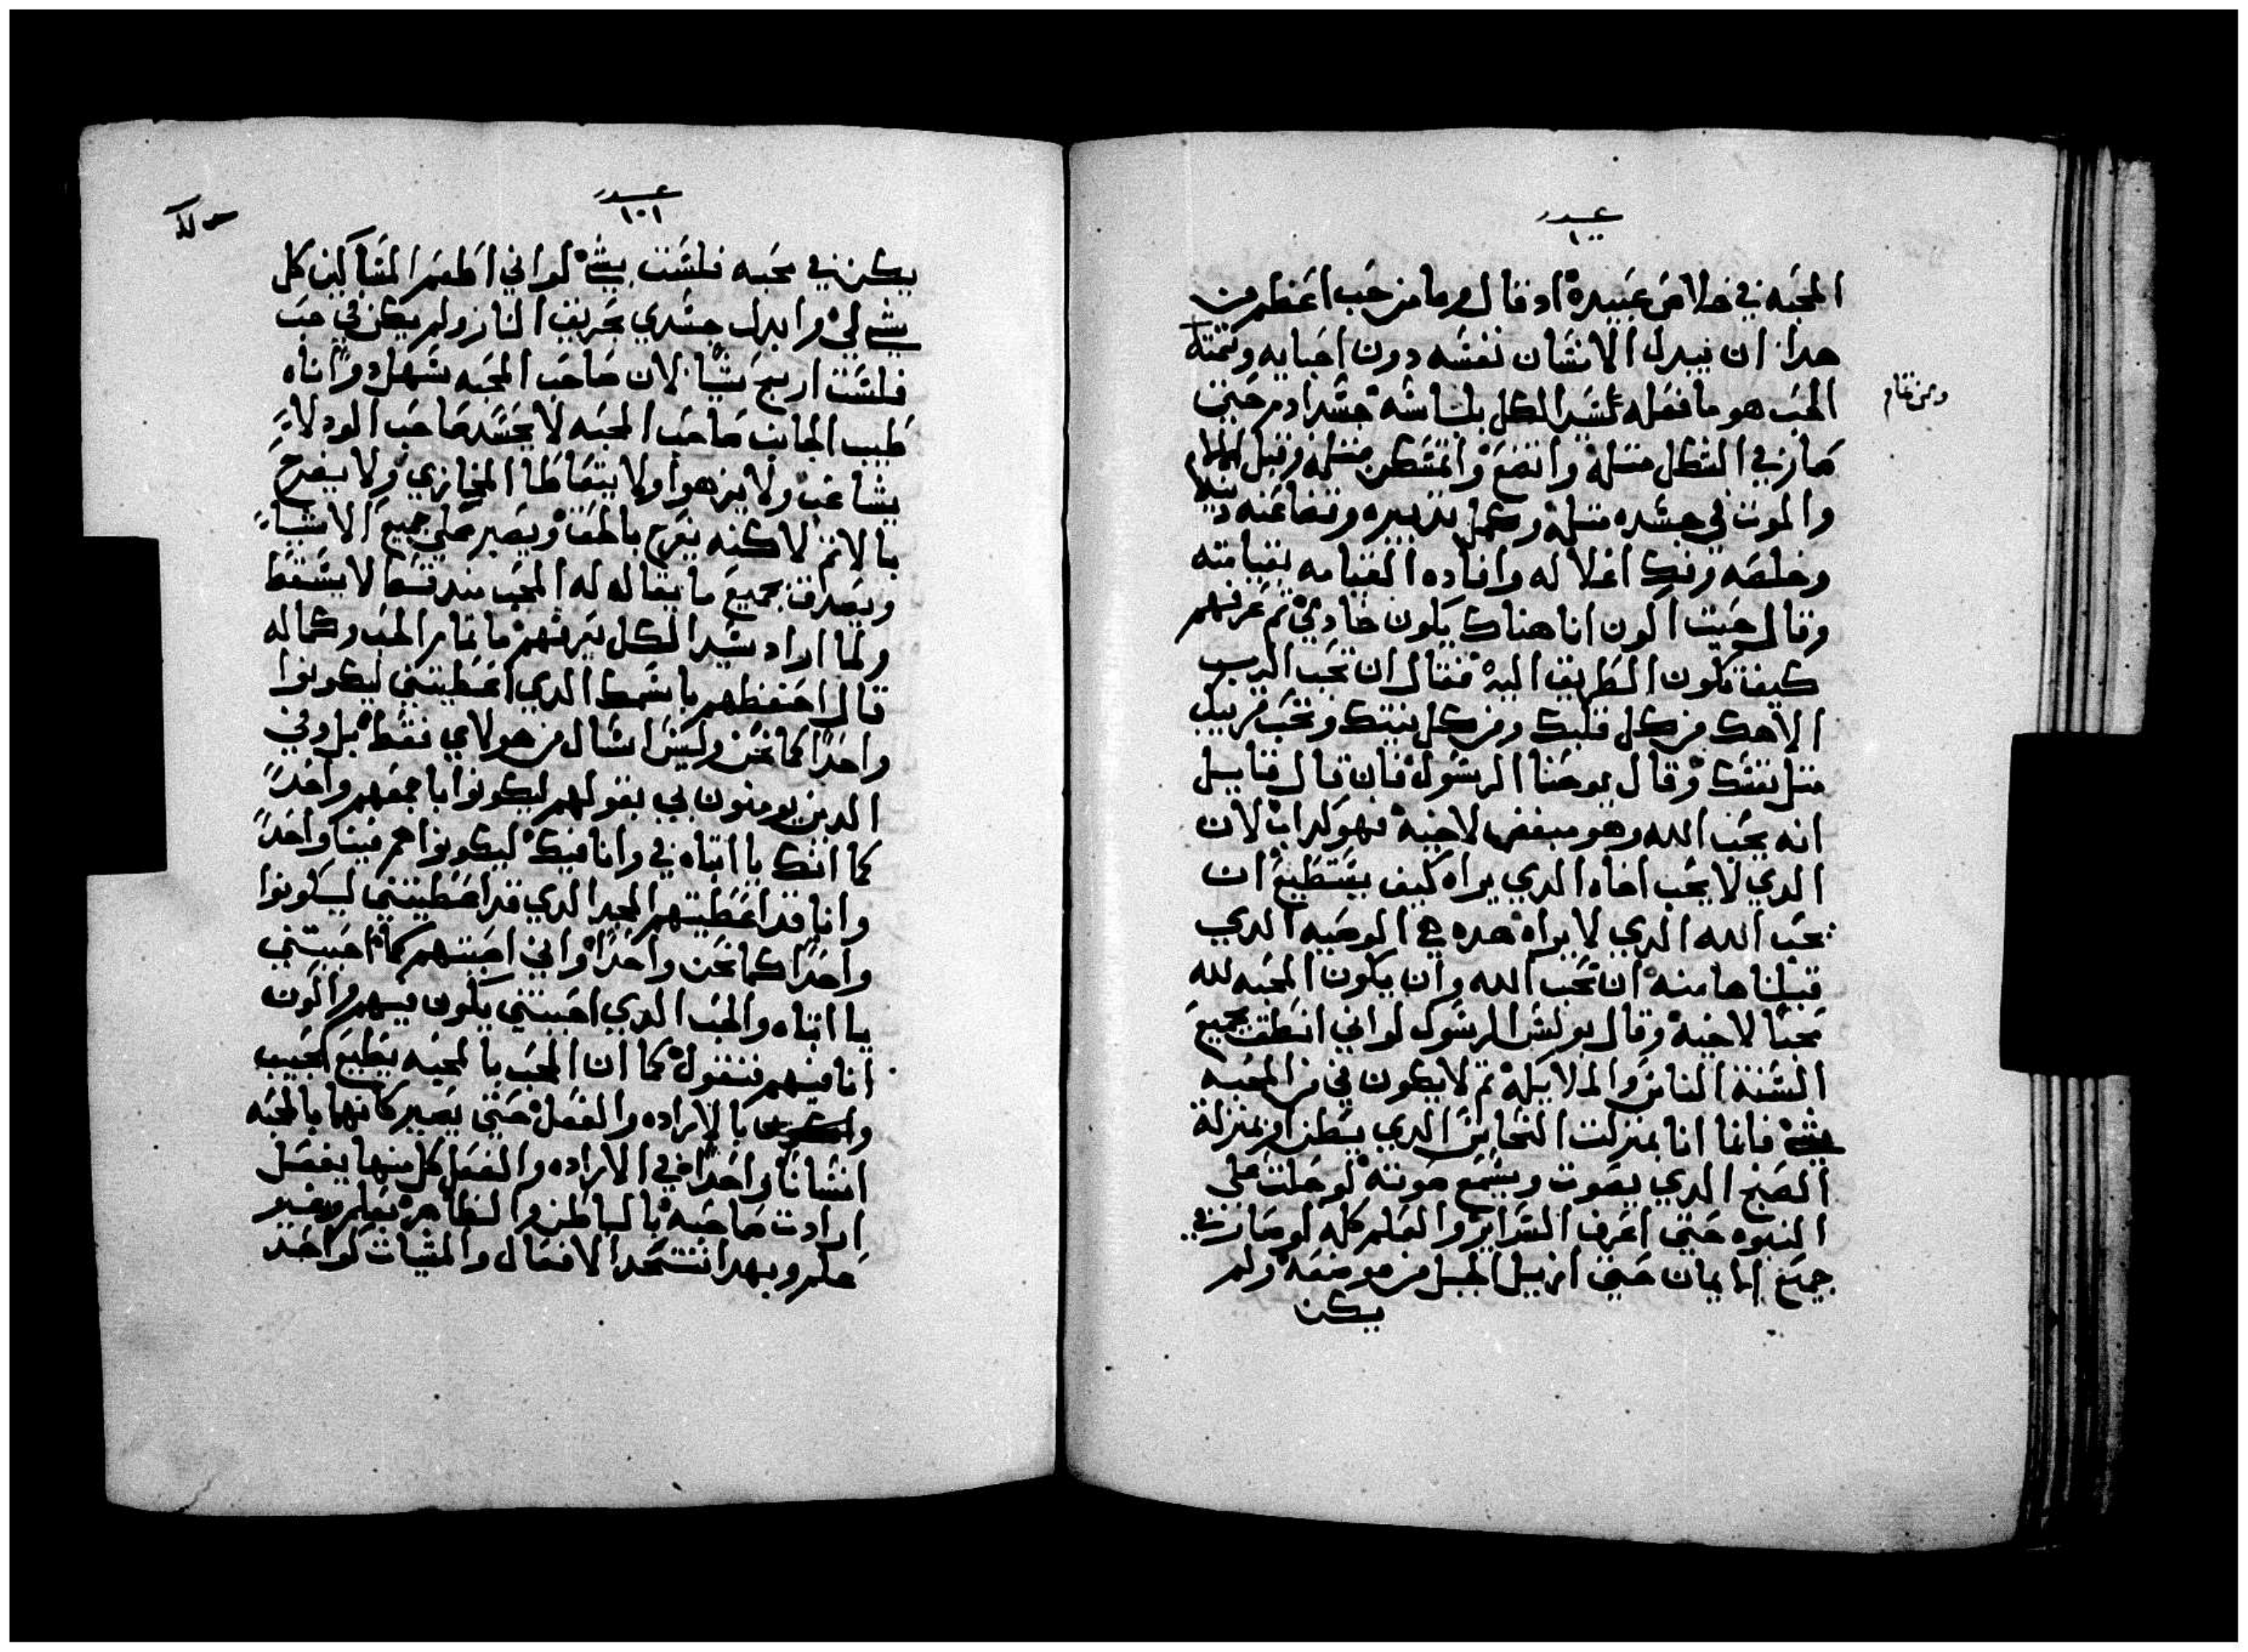 عدد
١٠٠
المحبه في خلاص عبيده اد قال وما من حب اعظم من
هدا ان يبدل الانسان نفسه دون احبايه وتتمتة
الحب هو ما فعله سيد الكل بلناسه جسد ادم حتي
ومن تمام
صار في الشكل متله واتضع واتمسكن متله وقبل الالام
والموت في جسده متله وكمل تدبيره وتضاعنه
وخلصه وفك اغلاله وافاده القيامه بقيامته
وقال حيت اكون انا هناك يكون خادمي تم عرفهم
كيف تكون الطريق اليه فقال ان تحب الرب
الاهك من كل قلبك ومن كل نيتك وتحب قريبك
متل نفسك وقال يوحنا الرسول فان قال قايل
انه يحب الله وهو مبغض لاخيه فهو كداب لان
الدي لا يحب اخاه الدي يراه كيف يستطيع ان
يحب الله الدي لا يراه هده هي الوصيه الدي
قبلناها منه ان تحب الله وان يكون المحبه لله
محبًا لاخيه وقال بولس الرسول لو اني انطقت بجميع
السنة الناس والملايكه تم لا يكون في من المحبه
شي فانما انا بمنزلت النحاس الدي يطن او بمنزلة
الصنج الدي يصوت ويسمع صوته لو حلت علي
النبوه حتي اعرف السراير والعلم كله لو صار في
جميع الايمان حتي ازيل الجبل من موضعه ولم
يكن
عدد
١٠١
يكن في محبه فلست بشي لو اني اطعم المساكين كل
شي لي وابدل جسدي بحريق النار ولم يكن في حب
فلست اربح شيًا لان صاحب المحبه سهل دو اناه
طيب الجانب صاحب المحبه لا يحسد صاحب الود لا
يشاغب ولا يزهوا ولا يتعاطا المخازي ولا يفرح
بالاتم لاكنه يفرح بالحق ويصبر علي جميع الاشيا
ويصدق بجميع ما يقاله له المحب مند قط لا يسقط
ولما اراد سيد الكل يعرفهم ما تمام الحب وكماله
قال احفظهم باسمك الدي اعطيتني ليكونوا
واحدًا كما نحن وليس اسال من هولاي فقط بل وفي
الدين يومنون بي بقولهم ليكونوا باجمعهم واحدًا
كما انك يا ابتاه في وانا فيك ليكونوا هم فينا واحدًا
وانا قد اعطيتهم المجد الدي قد اعطيتني ليكونوا
واحدًا كما نحن واحدًا واني احببتهم كما احببتني
يا ابتاه والحب الدي احببتني يكون فيهم واكون
انا فيهم فنقول كما ان المحب بالمحبه يطيع لحبيب
بالاراده والفعل حتي يصير كانهما بالمحبه
انسانًا واحدًا في الاراده والفعل كل منهما يفعل
ارادت صاحبه بالباطن والظاهر بعلم وبغير
علم وبهدا تتحد الافعال والمشيات لواحد